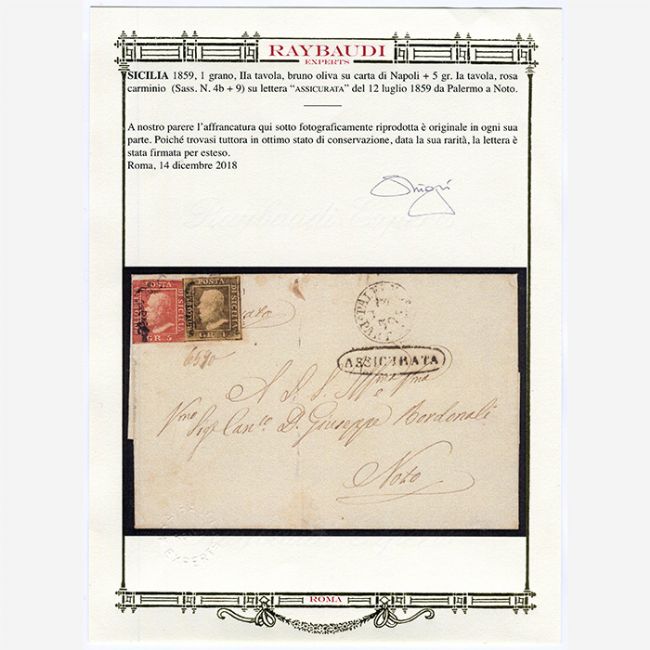 RAYBAUDI
EXPERTS
SICILIA 1859, 1 grano, IIa tavola, bruno oliva su carta di Napoli + 5 gr. Ia tavola, rosa
carminio (Sass. N. 4b + 9) su lettera “ASSICURATA” del 12 luglio 1859 da Palermo a Noto.
A nostro parere l’affrancatura qui sotto fotograficamente riprodotta è originale in ogni sua
parte. Poiché trovasi tuttora in ottimo stato di conservazione, data la sua rarità, la lettera è
stata firmata per esteso.
Roma, 14 dicembre 2018
POSTA
DI SICILIA
GR. 5
POSTA
DI SICILIA
GR. 1
ASSICURATA
Giuseppe
Noto
EXPERTS
ROMA